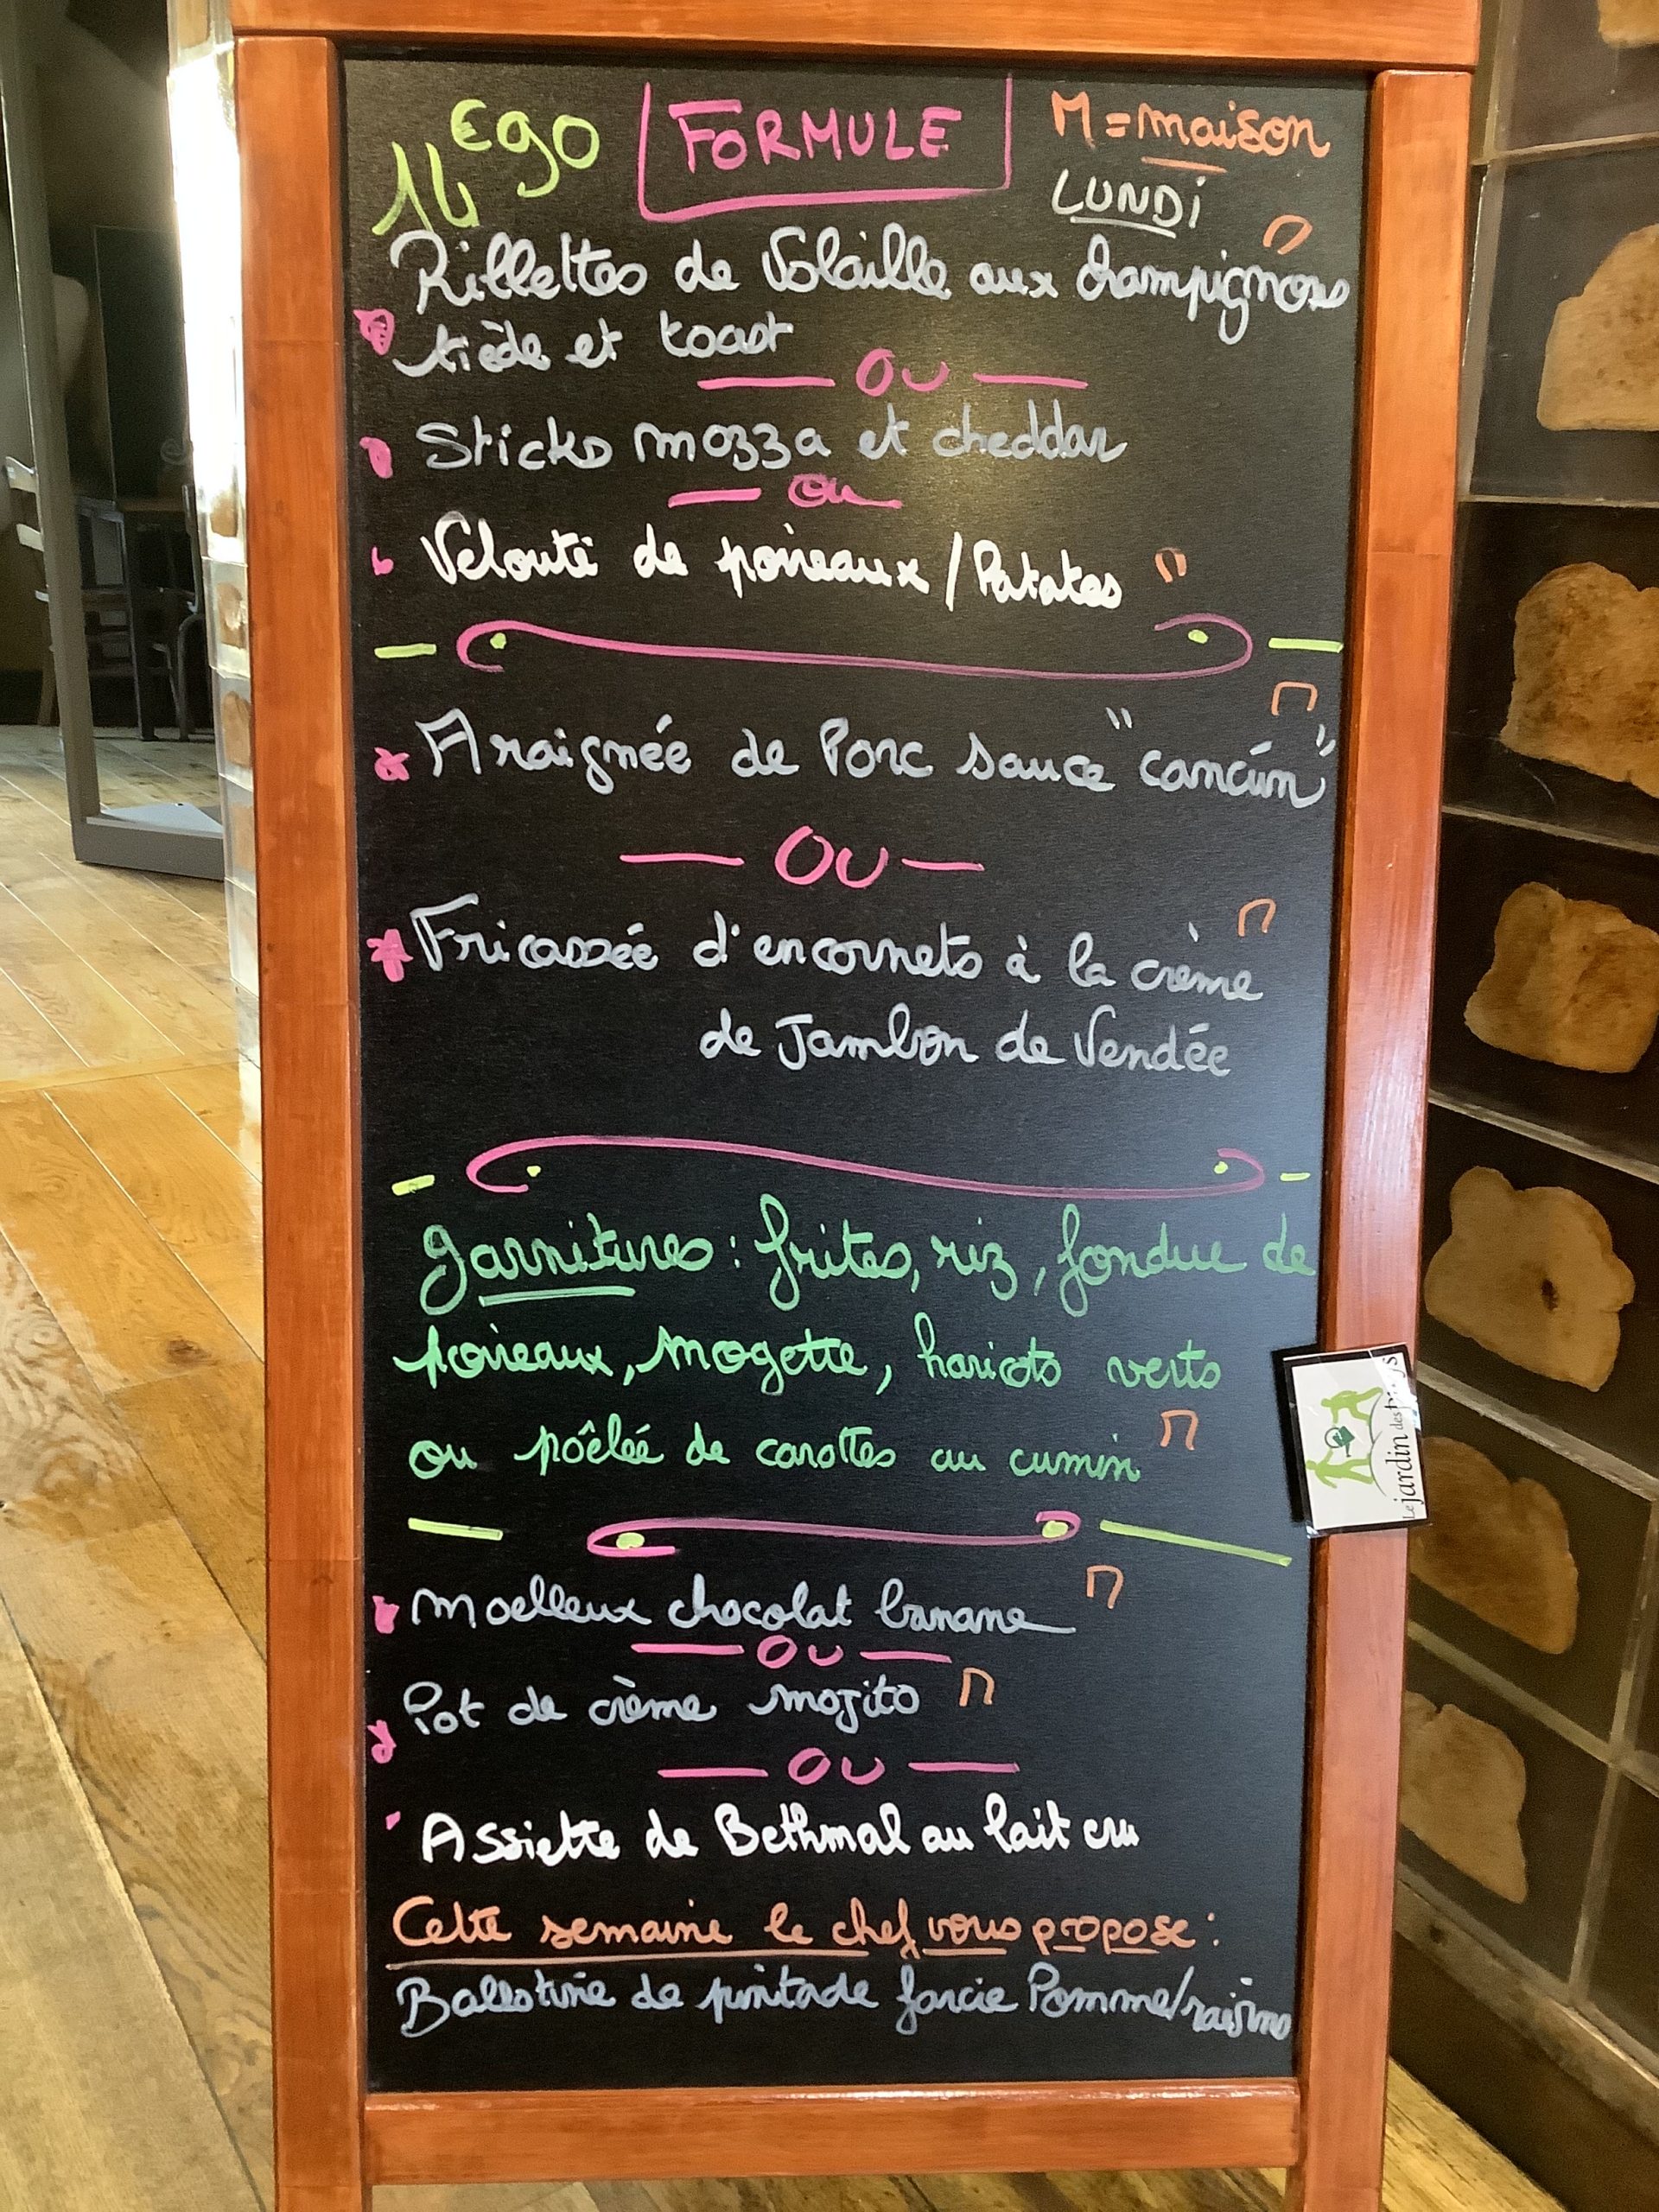 14€90 FORMULE M = maison
LUNDi
M
Rillettes de Volaille aux champignons
tiède et toast
OU
Sticks mozza et cheddar
ou
Velouté de poireaux / Patates M
M
Araignée de Porc sauce "cancún"
OU
Fricassée d'encornets à la crème M
de Jambon de Vendée
garnitures : frites, riz, fondue de
poireaux, mogette, haricots verts
ou poêlée de carottes au cumin M
Le jardin des pays
moelleux chocolat banane M
OU
Pot de crème mojito M
OU
Assiette de Bethmal au lait cru
Cette semaine le chef vous propose :
Ballotine de pintade farcie Pomme/raisins